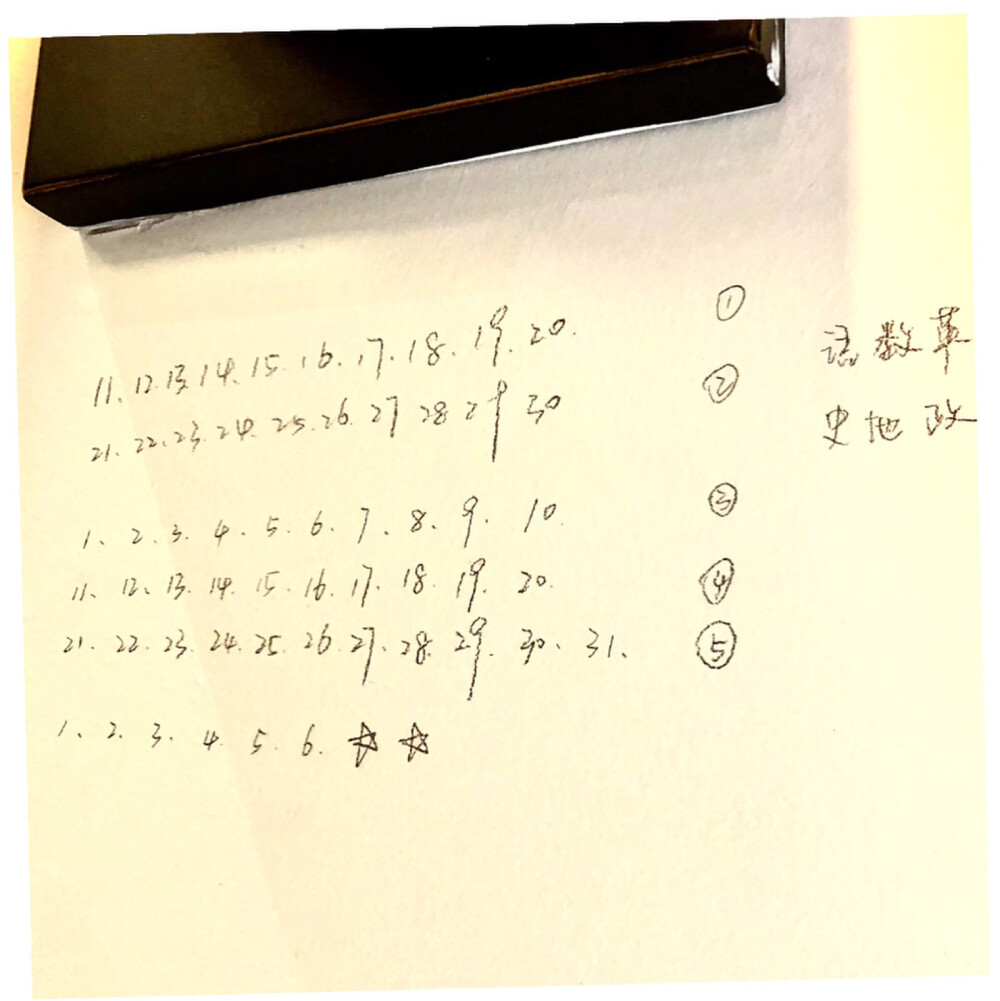 11、12.13.14.15.16.17.18.19.20. ①
语数英
21.22.23.24.25.26.27 28 29 30 ②
史地政
1、2.3.4.5.6.7.8.9.10. ③
11、12、13.14.15.16.17.18.19.20. ④
21.22.23.24.25.26.27.28.29.30、31、 ⑤
1、2.3.4.5.6.☆☆